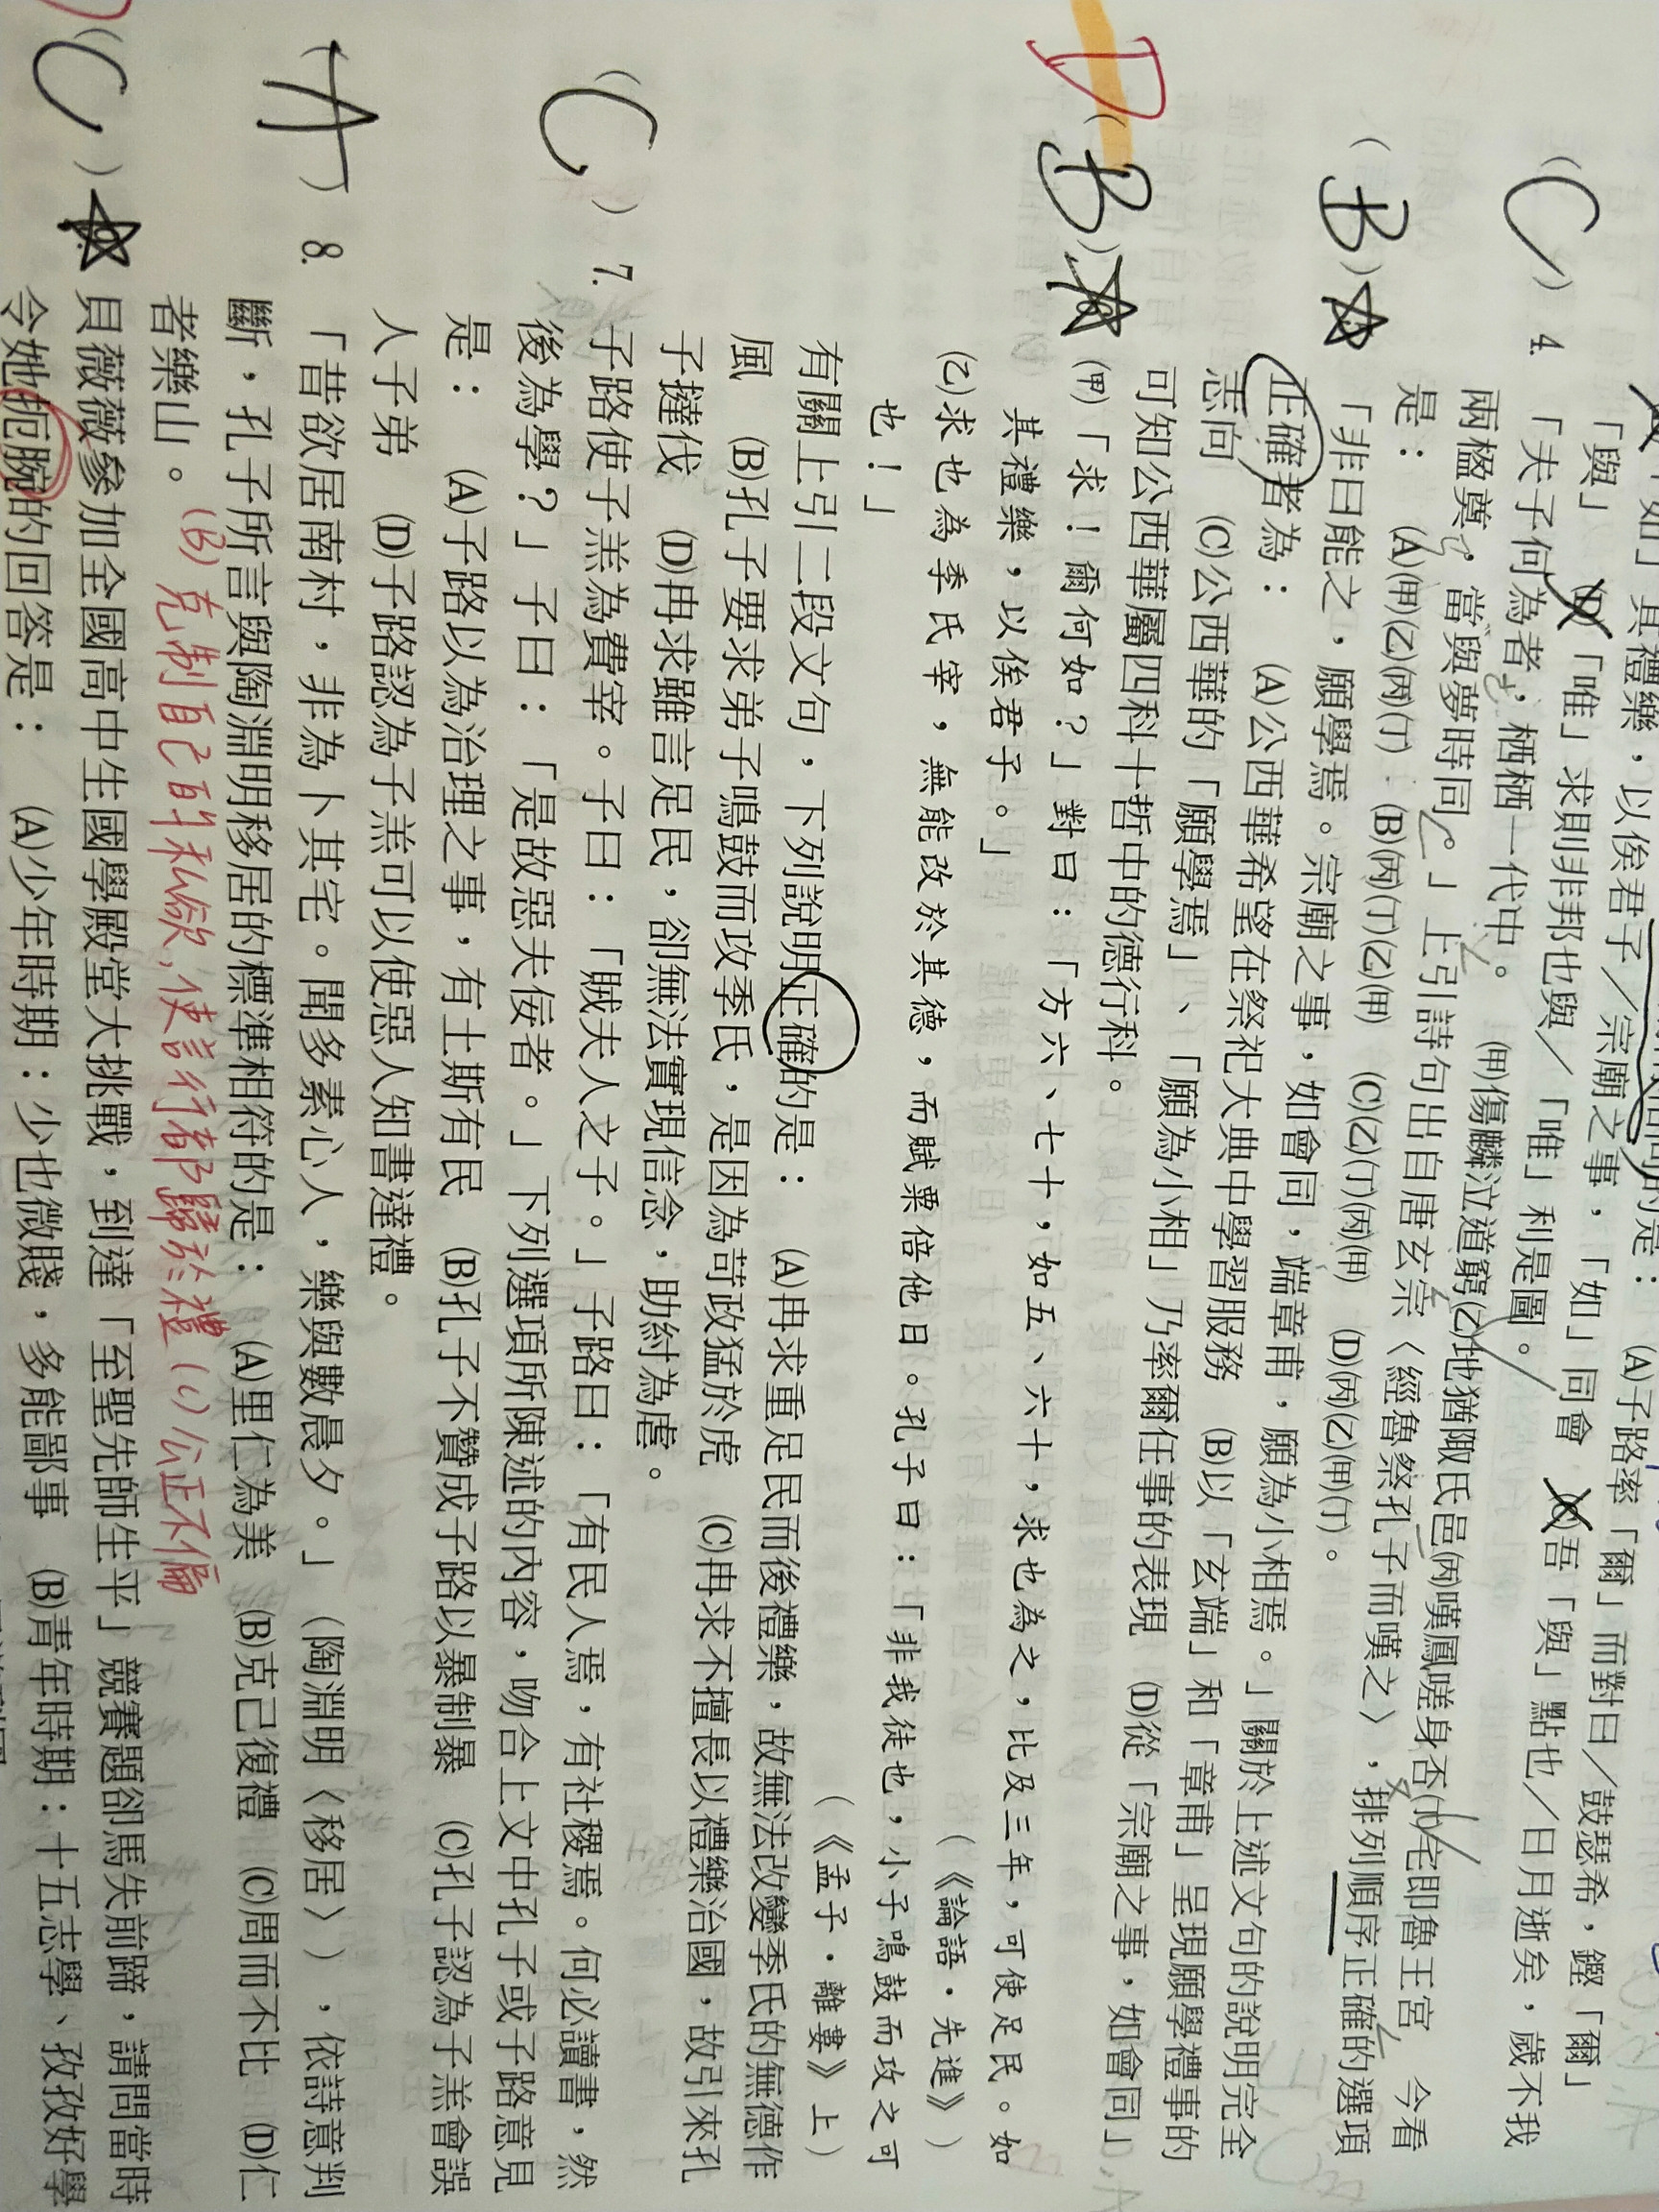 「如」其禮樂,以俟君子/宗廟之事,「如」同會
的是: (A)子路率「爾」而對曰/鼓瑟希,鏗「爾」
「與」 (D)「唯」求則非邦也與/「唯」利是圖。
(C)吾「與」點也/日月逝矣,歲不我
(C) 4. 「夫子何為者,栖栖一代中。 (甲)傷麟泣道窮(乙)地猶陬氏邑(丙)嘆鳳嗟身否(丁)宅即魯王宮 今看
兩楹奠,當與夢時同。」上引詩句出自唐玄宗〈經魯祭孔子而嘆之〉,排列順序正確的選項
是: (A)(甲)(乙)(丙)(丁) (B)(丙)(丁)(乙)(甲) (C)(乙)(丁)(丙)(甲) (D)(丙)(乙)(甲)(丁)。
(B) 「非曰能之,願學焉。宗廟之事,如會同,端章甫,願為小相焉。」關於上述文句的說明完全
正確者為: (A)公西華希望在祭祀大典中學習服務 (B)以「玄端」和「章甫」呈現願學禮事的
志向 (C)公西華的「願學焉」、「願為小相」乃率爾任事的表現 (D)從「宗廟之事,如會同」
可知公西華屬四科十哲中的德行科。
D
(B) 6. (甲)「求!爾何如?」對曰:「方六、七十,如五、六十,求也為之,比及三年,可使足民。如
其禮樂,以俟君子。」 (《論語・先進》)
(乙)求也為季氏宰,無能改於其德,而賦粟倍他日。孔子曰:「非我徒也,小子鳴鼓而攻之可
也!」 (《孟子・離婁》上)
有關上引二段文句,下列說明正確的是: (A)冉求重足民而後禮樂,故無法改變季氏的無德作
風 (B)孔子要求弟子鳴鼓而攻季氏,是因為苛政猛於虎 (C)冉求不擅長以禮樂治國,故引來孔
子撻伐 (D)冉求雖言足民,卻無法實現信念,助紂為虐。
(C) 7. 子路使子羔為費宰。子曰:「賊夫人之子。」子路曰:「有民人焉,有社稷焉。何必讀書,然
後為學?」子曰:「是故惡夫佞者。」下列選項所陳述的內容,吻合上文中孔子或子路意見
是: (A)子路以為治理之事,有士斯有民 (B)孔子不贊成子路以暴制暴 (C)孔子認為子羔會誤
人子弟 (D)子路認為子羔可以使惡人知書達禮。
(A) 8. 「昔欲居南村,非為卜其宅。聞多素心人,樂與數晨夕。」(陶淵明〈移居〉),依詩意判
斷,孔子所言與陶淵明移居的標準相符的是: (A)里仁為美 (B)克己復禮 (C)周而不比 (D)仁
者樂山。
(B) 克制自己的私慾,使言行都歸於禮 (C) 公正不偏
(C) 貝薇薇參加全國高中生國學殿堂大挑戰,到達「至聖先師生平」競賽題卻馬失前蹄,請問當時
令她扼腕的回答是: (A)少年時期:少也微賤,多能鄙事 (B)青年時期:十五志學、孜孜好學